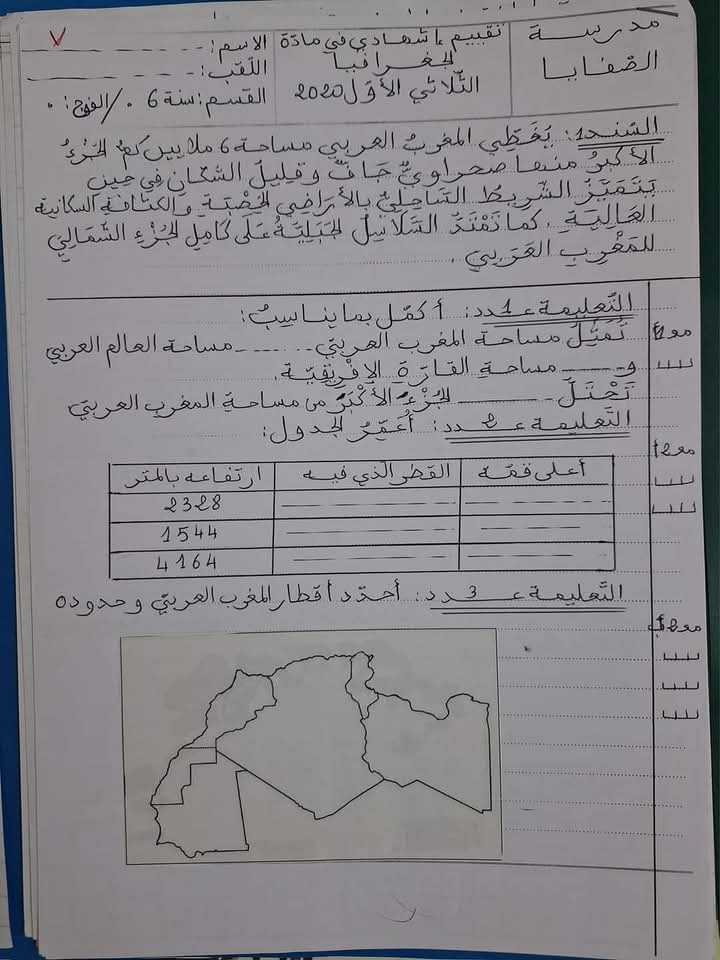 مدرسة
الصّفايا
تقييم إشهادي في مادّة
الجغرافيا
الثّلاثي الأوّل 2020
الاسم:
اللّقب:
القسم: سنة 6 / الفوج:
السّند1: يُغَطِّي المغربُ العربي مساحة 6 ملايين كم² الجُزْءُ
الأكبرُ منها صحراويٌّ جَافٌّ وقليلُ السُّكّان في حين
يَتَمَيَّزُ الشّريطُ السَّاحِلِيُّ بالأراضِي الخِصْبَةِ والكثافةِ السكّانية
العَالِيَةِ. كما تَمْتَدُّ السَّلَاسِلُ الجَبَلِيَّةُ عَلَى كَامِلِ الجُزْءِ الشَّمَالِيّ
للمَغْرِبِ العَرَبِي.
التَّعليمة عـ1ـدد: أكمّل بما يناسبُ:
تُمَثِّلُ مساحة المغرب العربيّ مساحة العالم العربي
و مساحةِ القارّةِ الإفْرِيقِيّة.
تَحْتَلُّ الجُزْءَ الأَكْبَرَ من مساحةِ المغربِ العربيّ
التَّعليمة عـ2ـدد: أُعَمِّرُ الجدول:
أعلى قمّة القطر الّذي فيه ارتفاعه بالمتر
2328
1544
4164
التَّعليمة عـ3ـدد: أحدّد أقطار المغرب العربيّ وحدوده